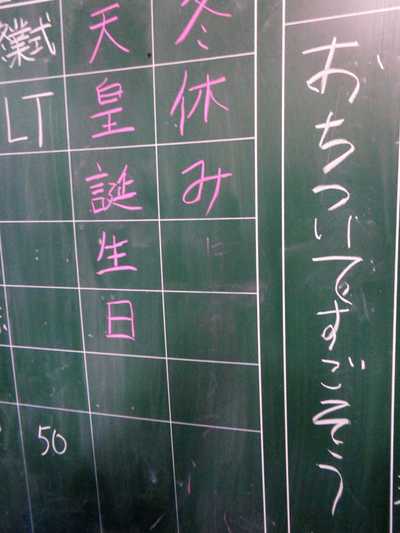 おちついですごそう
冬休み
天皇誕生日
終業式
LT
50